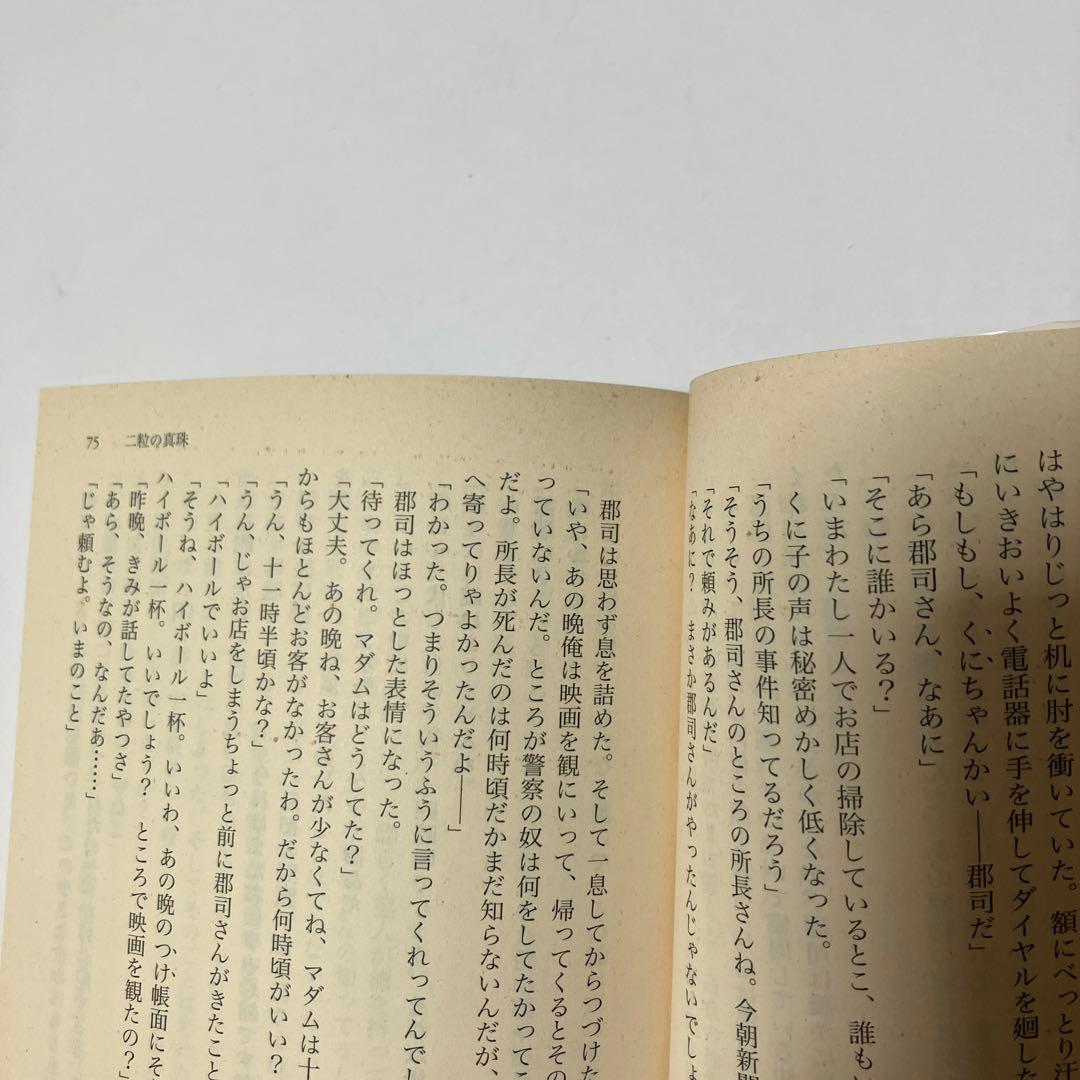 はやはりじっと机に肘を衝いていた。額にべっとり汗
にいきおいよく電話器に手を伸してダイヤルを廻した
「もしもし、くにちゃんかい――郡司だ」
「あら郡司さん、なあに」
「そこに誰かいる？」
「いまわたし一人でお店の掃除しているとこ、誰も
くに子の声は秘密めかしく低くなった。
「うちの所長の事件知ってるだろう」
「そうそう、郡司さんのところの所長さんね。今朝新聞
「それで頼みがあるんだ」
「なあに？　まさか郡司さんがやったんじゃないでしょ
75　二粒の真珠
郡司は思わず息を詰めた。そして一息してからつづけた
「いや、あの晩俺は映画を観にいって、帰ってくるとその
っていないんだ。ところが警察の奴は何をしてたかってこ
だよ。所長が死んだのは何時頃だかまだ知らないんだが、
へ寄ってりゃよかったんだよ――」
「わかった。つまりそういうふうに言ってくれってんでし
郡司はほっとした表情になった。
「待ってくれ。マダムはどうしてた？」
「大丈夫。あの晩ね、お客さんが少なくてね、マダムは十
からもほとんどお客がなかったわ。だから何時頃がいい？
「うん、十一時半頃かな？」
「うん、じゃお店をしまうちょっと前に郡司さんがきたこと
「ハイボールでいいよ」
「そうね、ハイボール一杯。いいわ、あの晩のつけ帳面にそ
ハイボール一杯。いいでしょう？　ところで映画を観たの？」
「昨晩、きみが話してたやつさ」
「あら、そうなの、なんだあ……」
「じゃ頼むよ。いまのこと」